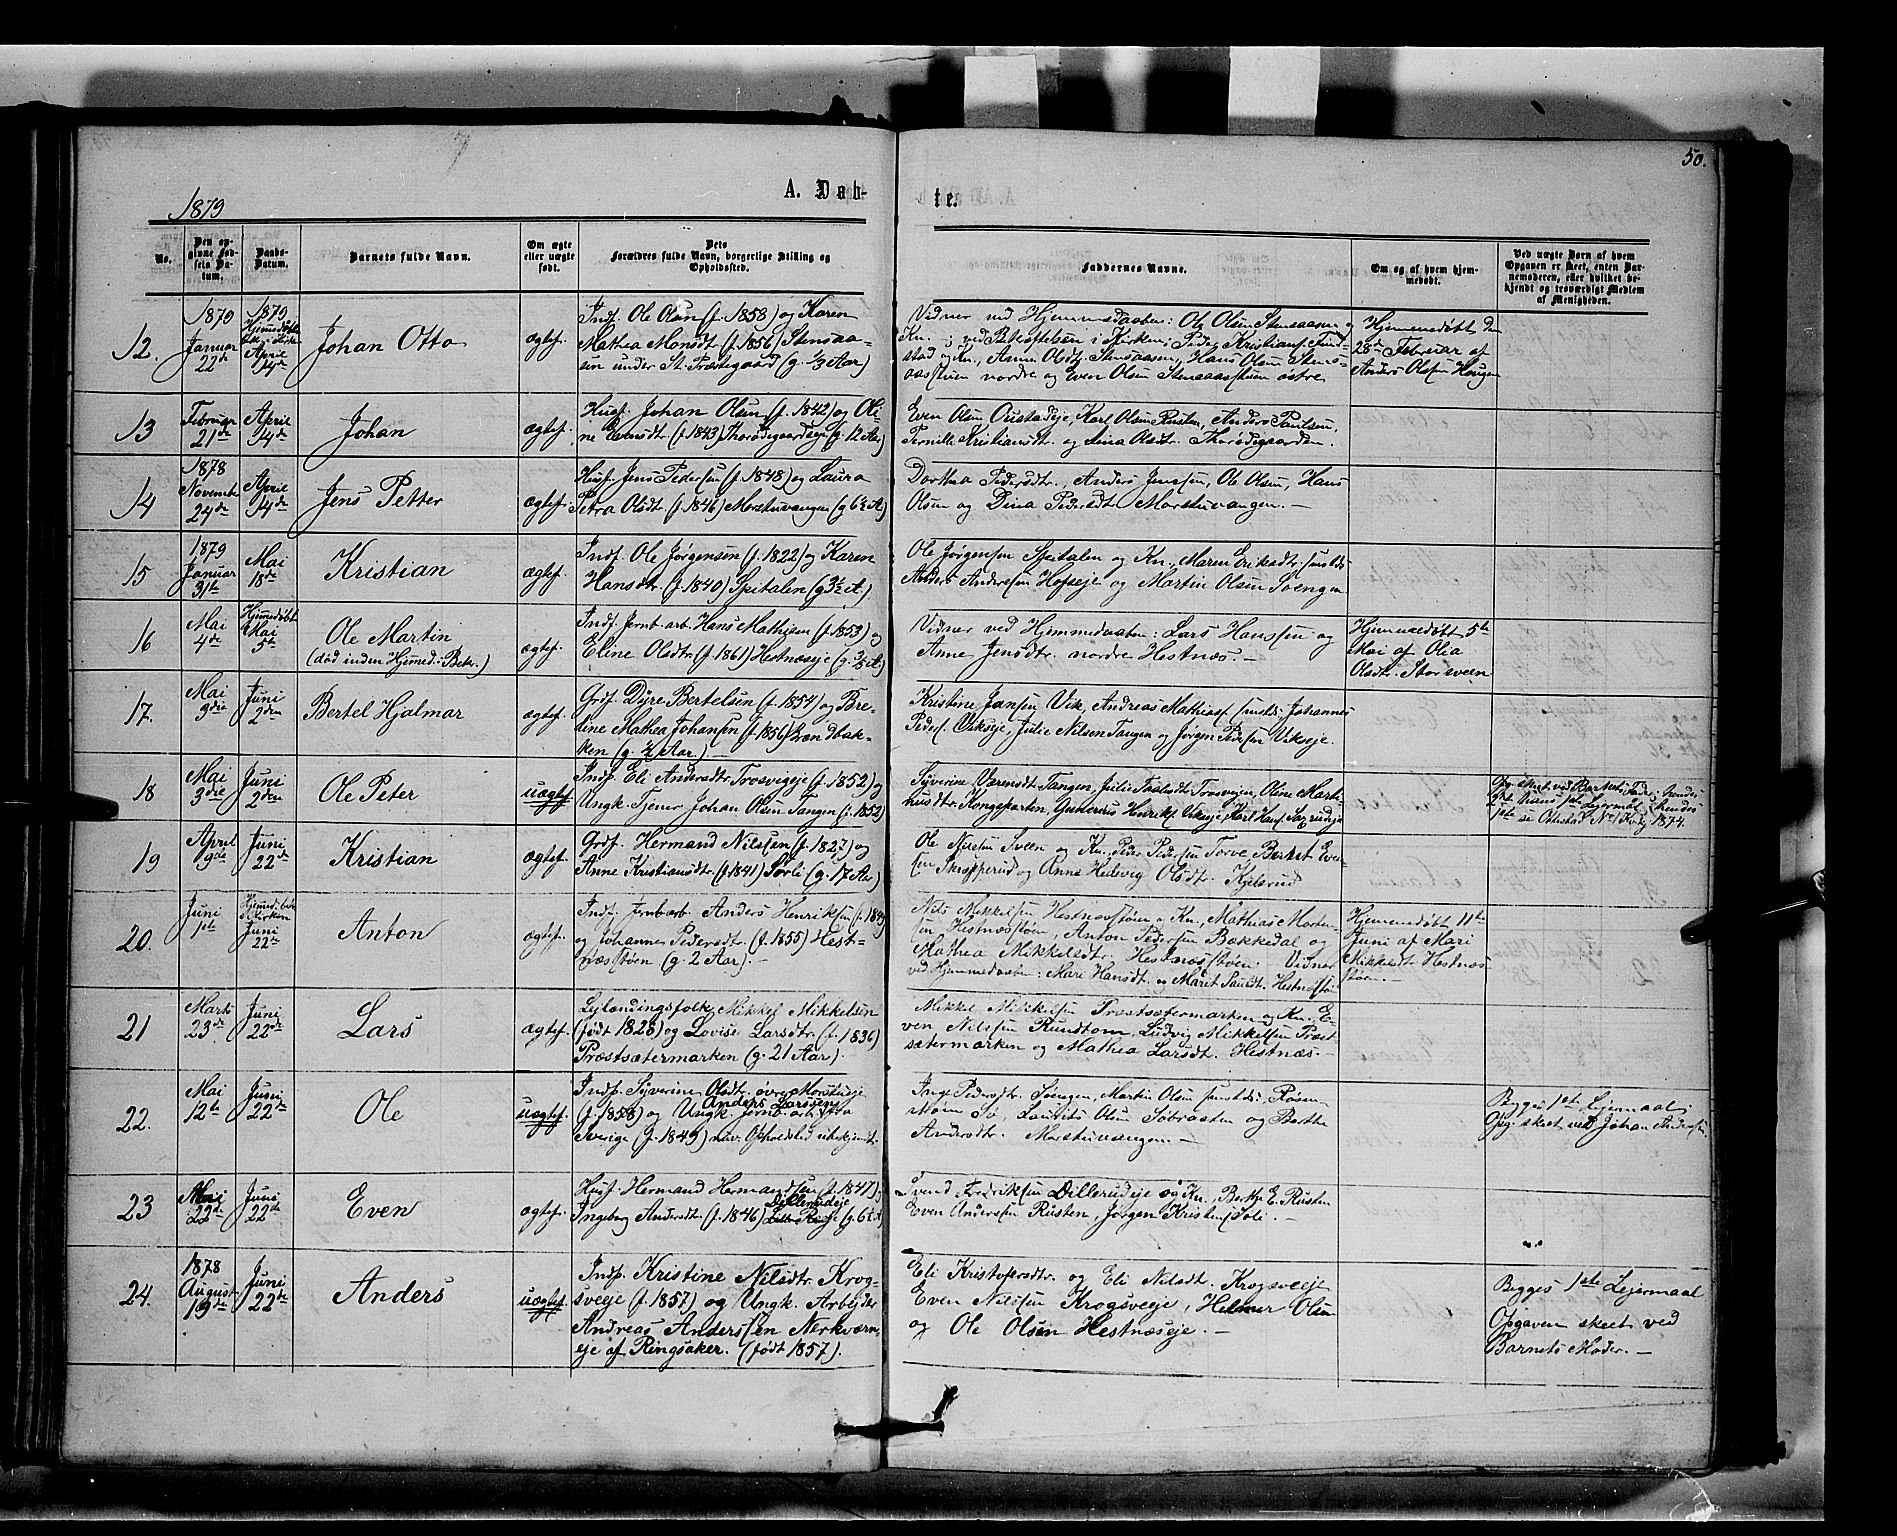 50.
1879
A. Døb-
te.
No.
Den op-
givne Fød-
sels Da-
tum.
Daabs-
Datum.
Barnets fulde Navn.
Om ægte
eller uægte
født.
Dets
Forældres fulde Navn, borgerlige Stilling og
Opholdssted.
Faddernes Navne.
Om og af hvem hjem-
medøbt.
Ved uægte Børn af hvem
Opgaven er skeet, enten Bar-
nemoderen, eller hvilket be-
kjendt og troværdigt Medlem
af Menigheden.
12.
1879
Januar
22de
1879
April
14de
Johan Otto
ægtef.
Indf. Ole Olsen (f. 1858) og Karen
Mathea Monsdt. (f. 1856) Stensaa-
sen under St. Præstegaard (g. 1/3 Aar)
Vidner ved Hjemmedaaben: Ole Olsen Stensaasen og
Kn.; ved Bekræftelsen i Kirken: Peder Kristians.
og Kn., Anne Olsdtr. Stensaasen, Hans Olsen Stens-
aasstuen nordre og Even Olsen Stensaasstuen østre
Hjemmedøbt den
28de Februar af
Anders Olsen Haugen
13
Februar
21de
April
14de
Johan
ægtef.
Husf. Johan Olsen (f. 1842) og Oli-
ne Evensdt. (f. 1843) Thorødegaardseje (g. 12 Aar)
Even Olsen Onstadeje, Karl Olsen Rusten, Anders Paulsen,
Pernille Kristiansdt. og Lina Olsdtr. Thorødegaarden.
14
1878
Novembr
24de
April
14de
Jens Petter
ægtef.
Husf. Jens Pedersen (f. 1848) og Laura
Petra Olsdt. (f. 1846) Morstuvangen (g 6½ A)
Dorthea Pedersdtr., Anders Jenssen, Ole Olsen, Hans
Olsen og Dina Pedersdt. Morstuvangen. —
15
1879
Januar
31te
Mai
18de
Kristian
ægtef.
Indf. Ole Jørgensen (f. 1822) og Karen
Hansdtr. (f. 1840) Spitalen (g 3½ A)
Ole Jørgensen Spitalen og Kn., Maren Eriksdtr. smstds.
Anders Andersen Hofseje og Martin Olsen Svengen
16
Mai
4de
Hjemmedøbt
Mai
5te
Ole Martin
(død inden Hjemmed.: Bekr.)
ægtef.
Indf. Jernb. arb. Hans Mathisen (f. 1853) og
Eline Olsdtr. (f. 1861) Hestnæseje
Vidner ved Hjemmedaaben: Lars Hanssen og
Anne Jensdtr. nordre Hestnæs. —
Hjemmedøbt 5te
Mai af Olia
Olsdtr. Storsveen
17.
Mai
3die
Juni
2den
Bertel Hjalmar
ægtef.
Grdf. Dyre Bertelsen (f. 1854) og Bre-
line Mathea Johansen (f. 1856) Brændbak-
ken (g. ½ Aar) —
Kristine Jansen Vik, Andreas Mathias. smstds. Johannes
Peders. Vikseje, Julie Nilsen Tangen og Jørgen Pedersen Vikseje.
18
Mai
3die
Juni
2den
Ole Peter
uægtef.
Indf. Eli Andersdtr. Trosvigeje (f. 1852) og
Ungk. Tjener Johan Olsen Tangen (f. 1852)
Syverine Tangen, Julie Trosvigen, Oline Marti-
nusdtr. Kongsparten, Gunerius Henriks. Vikseje, Karl Hans.
Opg. skeet ved Barnets Fader; hendes
2det, hans 1ste Leiermaal; hendes
1ste se Ottestad No 1874.
19
April
9de
Juni
22de
Kristian
ægtef.
Grdf. Hermand Nilssen (f. 1827) og
Anne Kristiansdtr. (f. 1841) Sørli (g. 17 Aar)
Ole Nilssen Sveen og Kn. Peder Pedersen Torve, Berthe Even-
sen Skrepperud og Anne Hedevig Olsdtr. Kjelsrud
20.
Juni
1ste
Juni
22de
Anton
ægtef.
Indf. Jernb.arb. Anders Henriksen (f. 1849)
og Johanne Pedersdtr. (f. 1855) Hest-
næsstøen (g. 2 Aar). —
Nils Mikkelsen Hestnæsstøen og Kn., Mathias Morten-
sen Hestnæsstøen, Anton Pedersen Bækkedal og
Mathea Mikkelsdtr. Hestnæsstøen. Vidner
ved Hjemmedaaben: Mari Hansdt. og Marit Paulsdt. Hestnæsstøen.
Hjemmedøbt 11te
Juni af Mari
Mikkelsdt. Hestnæs-
støen. —
21
Marts
23de
Juni
22de
Lars
ægtef.
Leilændingsfolk Mikkel Mikkelsen
(født 1828) og Lovise Larsdtr. (f. 1836)
Præstsætermarken (g. 21 Aar).
Mikkel Mikkelsen Præstsætermarken og Kn. E-
ven Nilssen Rundtom, Ludvig Mikkelsen Præst-
sætermarken og Mathea Larsdt. Hestnæs. —
22.
Mai
12te
Juni
22de
Ole
uægtef.
Indf. Syverine Olsdtr. øvre Morstueje
(f. 1858) og Ungk. Jernb. arb. Anders Larssen
Sverige (f. 1849) nuv. Opholdsted ubekjendt
Inge Pedersdtr. Søngen, Martin Olsen smstds., Rosen-
strøm Sø, Laurits Olsen Søbraaten og Berthe
Andersdtr. Morstuvangen. —
Begges 1ste Leiermaal;
Opg. skeet ved Johan Andersen
23
Mai
22de
Juni
22de
Even
ægtef.
Husf. Hermand Hermandsen (f. 1847) og
Ingeborg Andersdt. (f. 1846) Dillerudeje
Svend Fredriksen Dillerudeje og Kn., Berthe E. Rusten
Even Andersen Rusten, Jørgen Kristens. Soli. —
24.
1878
August
19de
Juni
22de
Anders
uægtef.
Indf. Kristine Nilsdtr. Krog-
sveeje (f. 1857) og Ungk. Arbejder
Andreas Anderssen Nerkværn-
eje af Ringsaker. (født 1857).
Eli Kristofersdtr. og Eli Nilsdt. Krogsveeje
Even Nilssen Krogsveeje, Helmer Olsen
og Ole Olsen Hestnæseje. —
Begges 1ste Leiermaal
Opgaven skeet ved
Barnets Moder. —